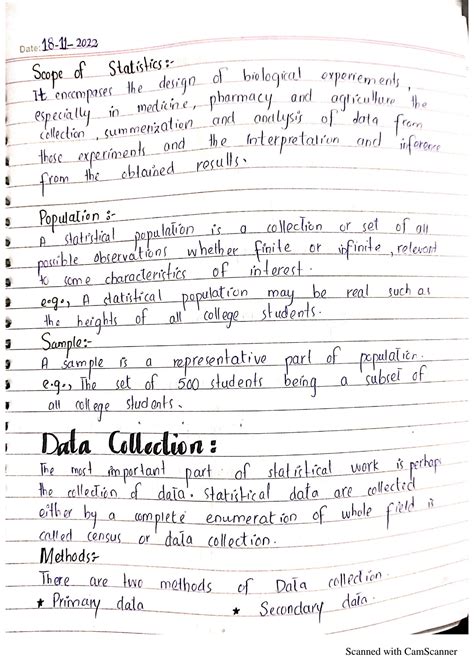 Date: 18-11-2022
Scope of Statistics:-
It encompases the design of biological experiements,
especially in medicine, pharmacy and agriculture the
collection, summerization and analysis of data from
those experiments and the interpretation and inference
from the obtained results.
Population :-
A statistical population is a collection or set of all
possible observations whether finite or infinite, relevant
to some characteristics of interest.
e.g., A statistical population may be real such as
the heights of all college students.
Sample:-
A sample is a representative part of population.
e.g., The set of 500 students being a subset of
all college students.
Data Collection:
The most important part of statistical work is perhaps
the collection of data. Statistical data are collected
either by a complete enumeration of whole field is
called census or data collection.
Methods:-
There are two methods of Data collection.
★ Primary data ★ Secondary data.
Scanned with CamScanner